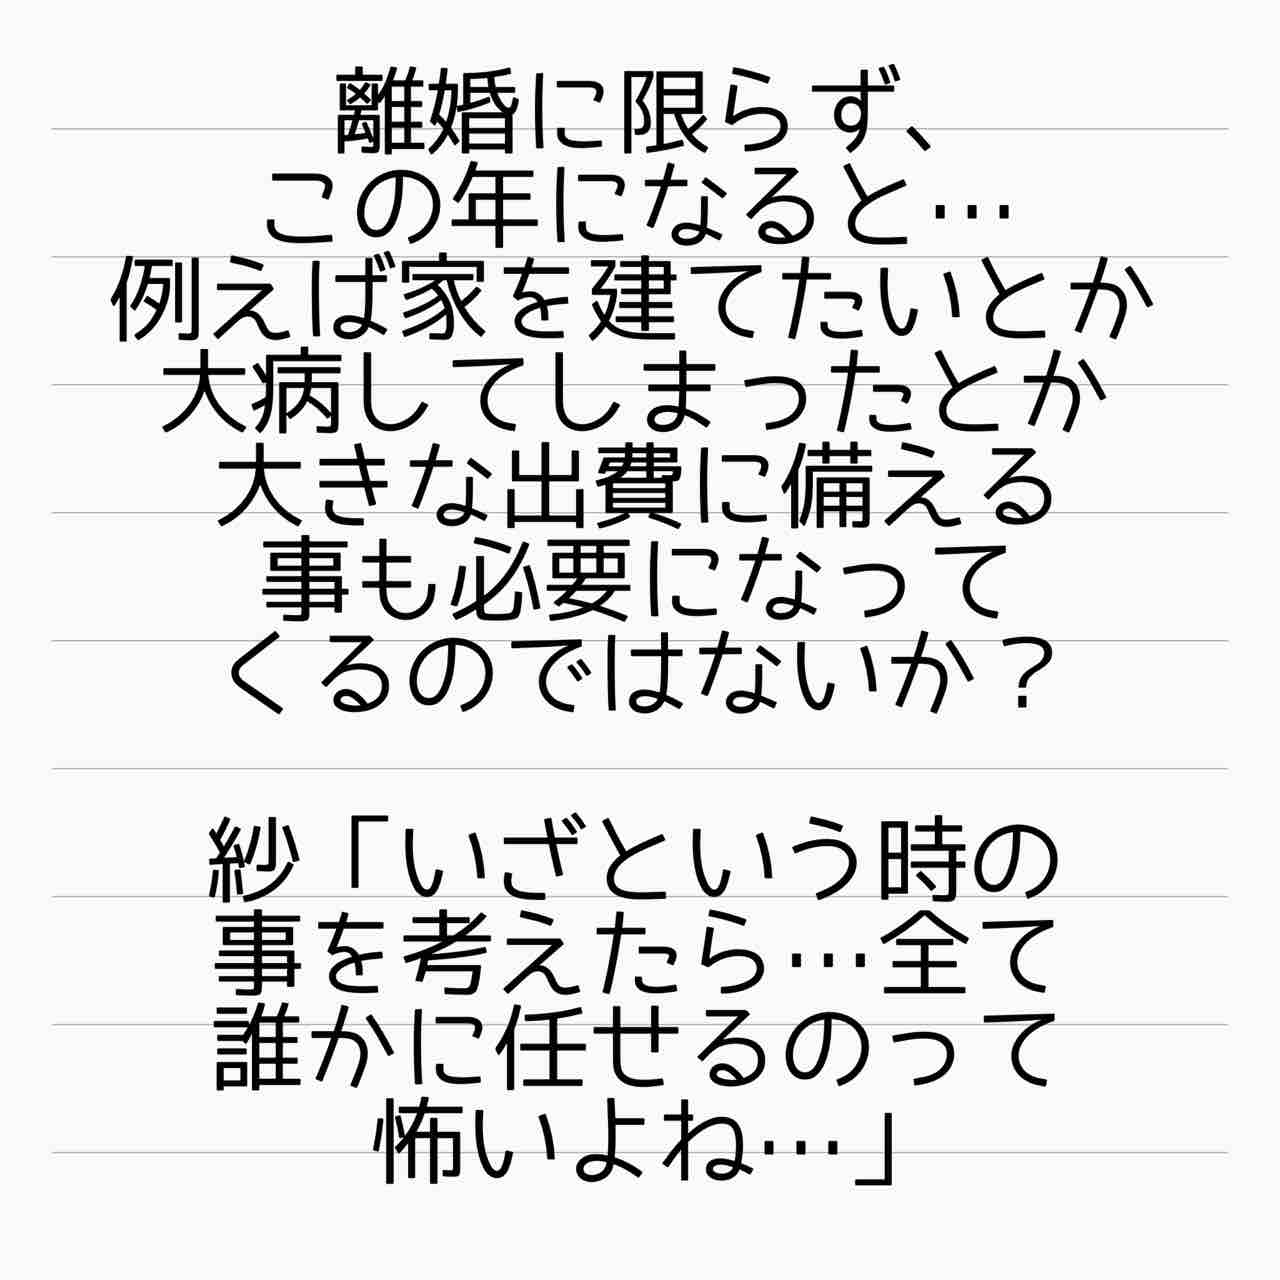 離婚に限らず、
この年になると…
例えば家を建てたいとか
大病してしまったとか
大きな出費に備える
事も必要になって
くるのではないか？
紗「いざという時の
事を考えたら…全て
誰かに任せるのって
怖いよね…」